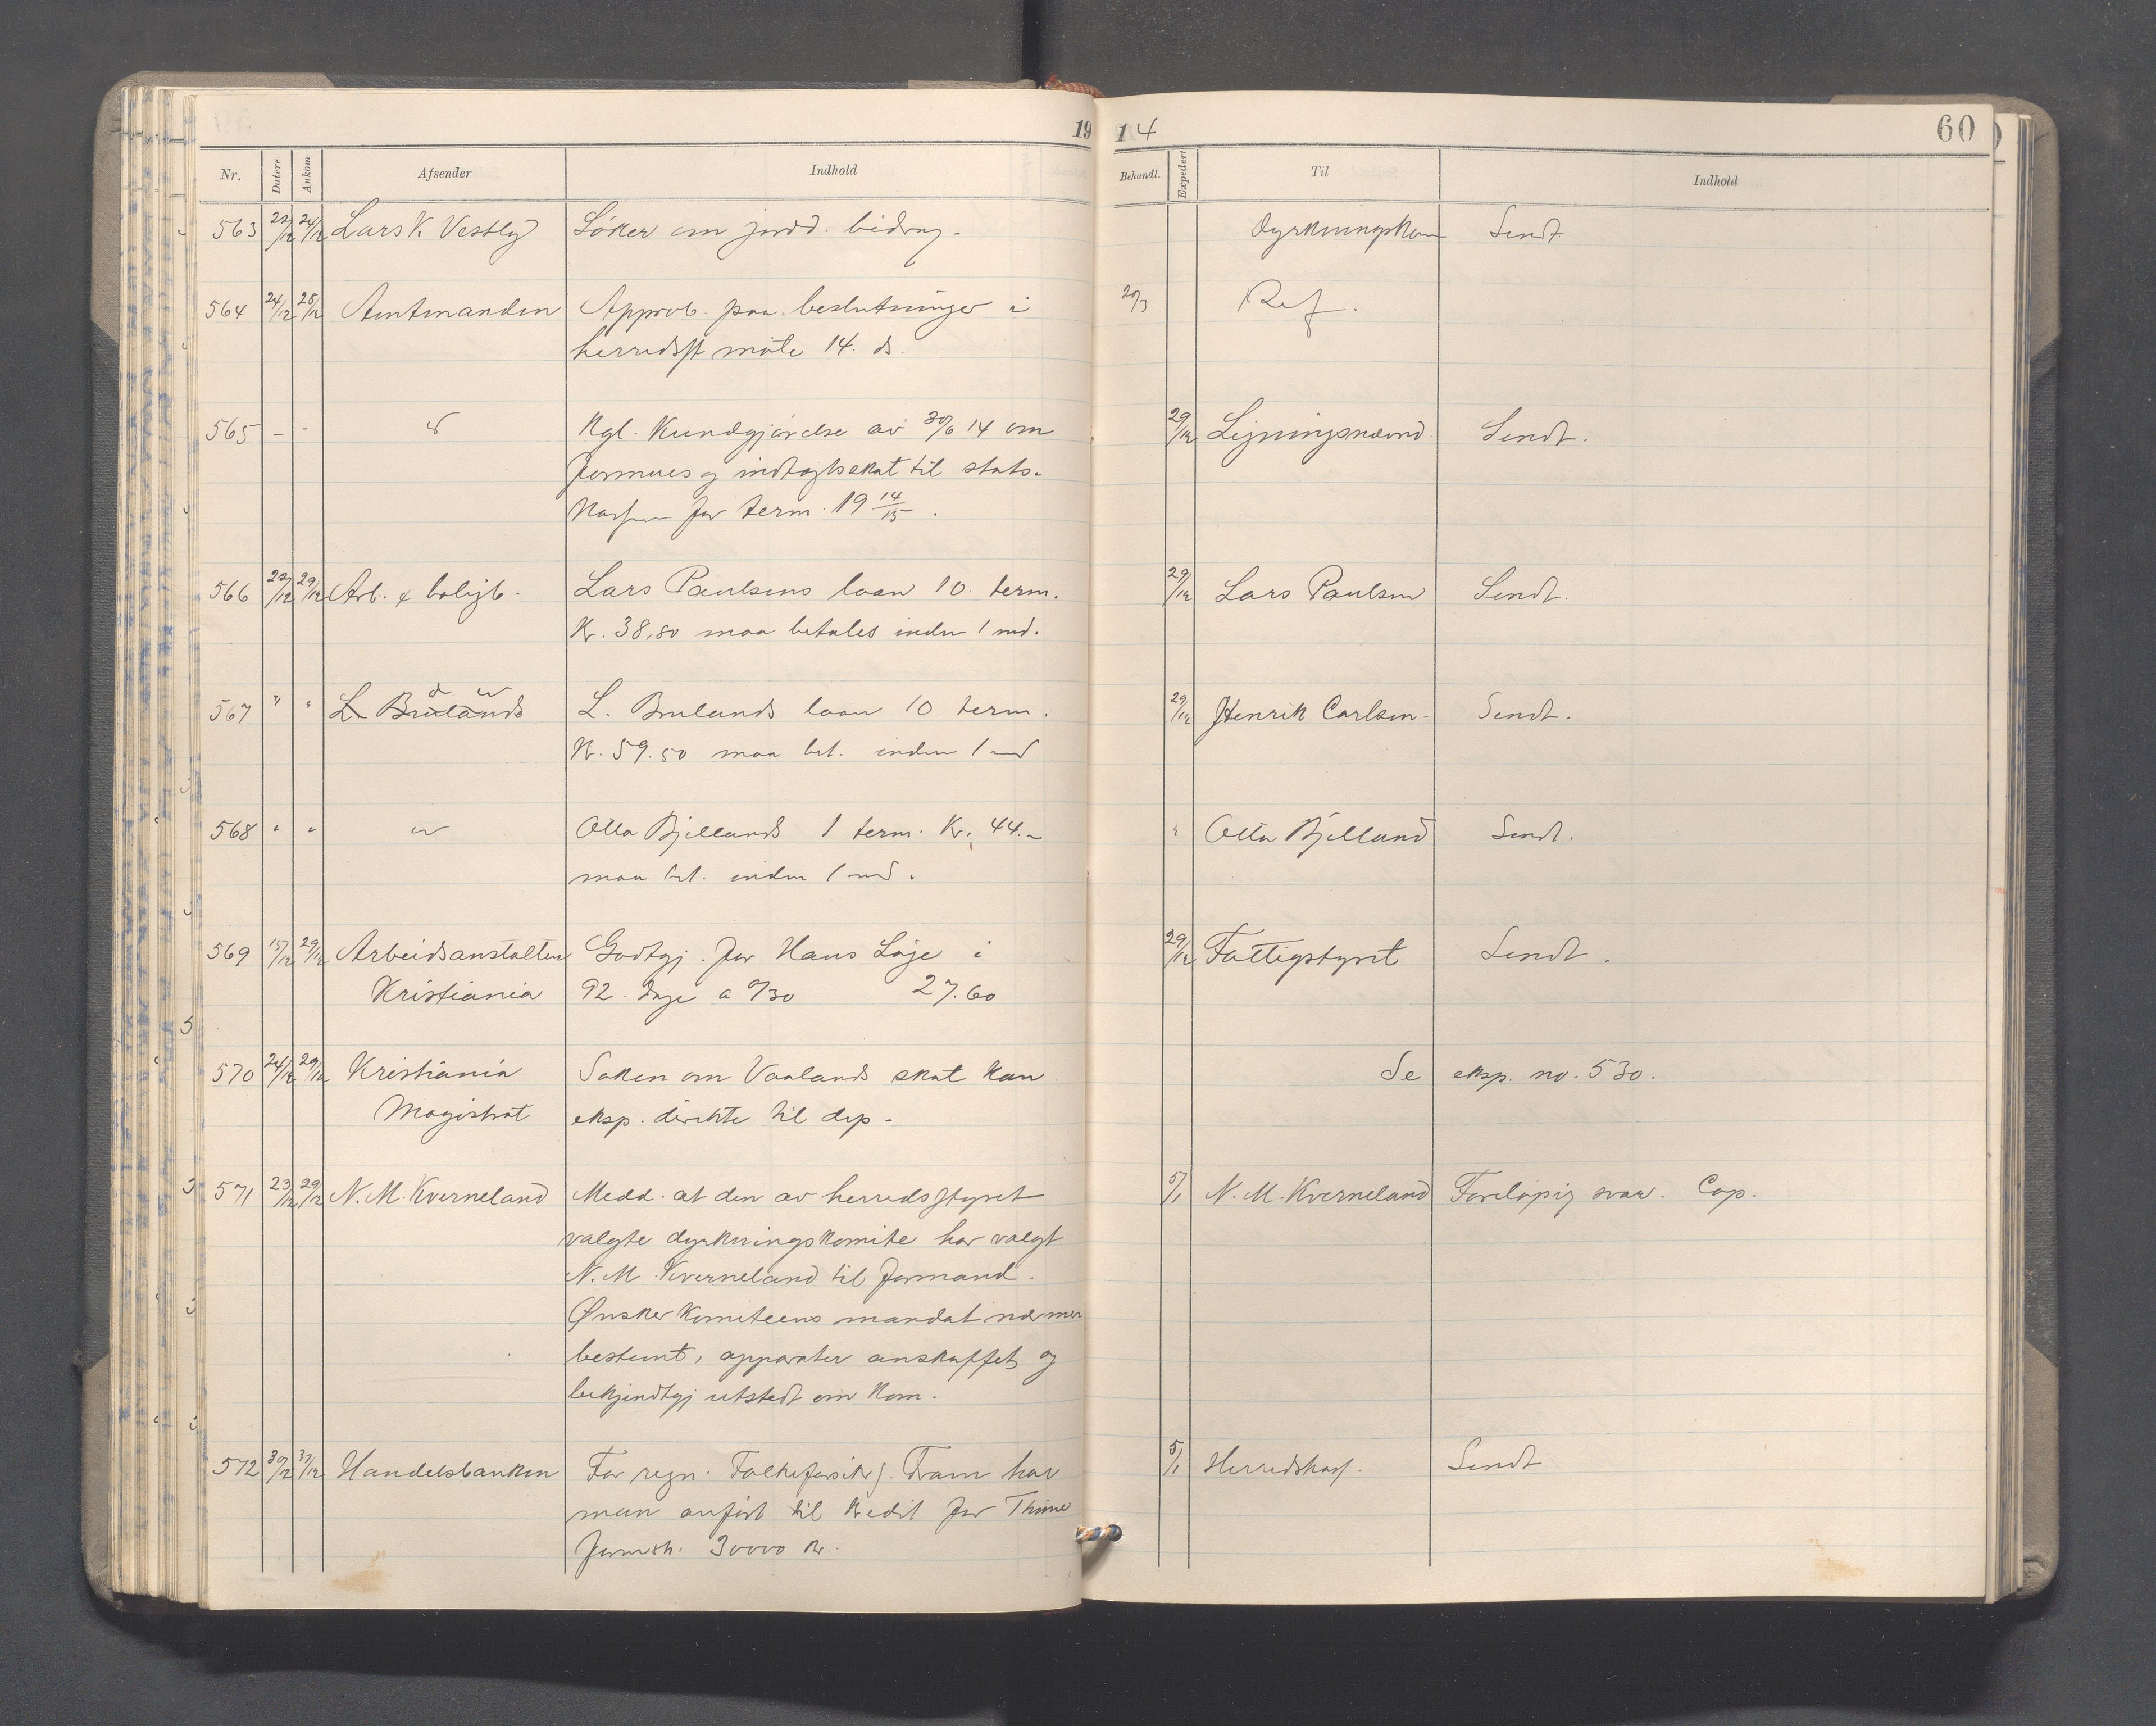 1914 60
Nr. Datert Ankom Afsender Indhold Behandl. Expedert Til Indhold
563 22/12 24/12 Lars K. Vestly Søker om jordd. bidrag. Dyrkningskom Sendt.
564 24/12 28/12 Amtmanden Approb. paa beslutninger i 20/3 Ref.
herredsst møte 14. ds.
565 - - " Kgl. Kundgjørelse av 30/6 14 om 29/12 Ligningsnævnd Sendt.
formues og indtægtsskat til stats-
kassen for term. 19 14/15.
566 22/12 29/12 Arb. & boligb. Lars Paulsens laan 10. term. 29/12 Lars Paulsen Sendt.
Kr. 38,80 maa betales inden 1 md.
567 " " L. Brulands L. Brulands laan 10 term. 29/12 Henrik Carlsen. Sendt.
Kr. 59.50 maa bet. inden 1 md
568 " " " Otto Bjellands 1 term. Kr. 44.- " Otto Bjelland Sendt.
maa bet. inden 1 md.
569 15/12 29/12 Arbeidsanstalten Godtgj. for Hans Løge i 29/12 Fattigstyret Sendt.
Kristiania 92. dage a 0/30 27.60
570 24/12 29/12 Kristiania Saken om Vaalands skat kan Se eksp. no. 530.
Magistrat eksp. direkte til dep.
571 23/12 29/12 N. M. Kverneland Medd. at den av herredsstyret 5/1 N. M. Kverneland Foreløpig svar. Cop.
valgte dyrkningskomite har valgt
N. M. Kverneland til formand.
Ønsker Komiteens mandat nærmer
bestemt, apparater anskaffet, og
bekjendtgj utstedt om Kom.
572 30/12 31/12 Handelsbanken For regn. Folkeforsikr. Fram har 5/1 Herredskas. Sendt
man anført til kredit for Thime
formsk. 30000 Kr.